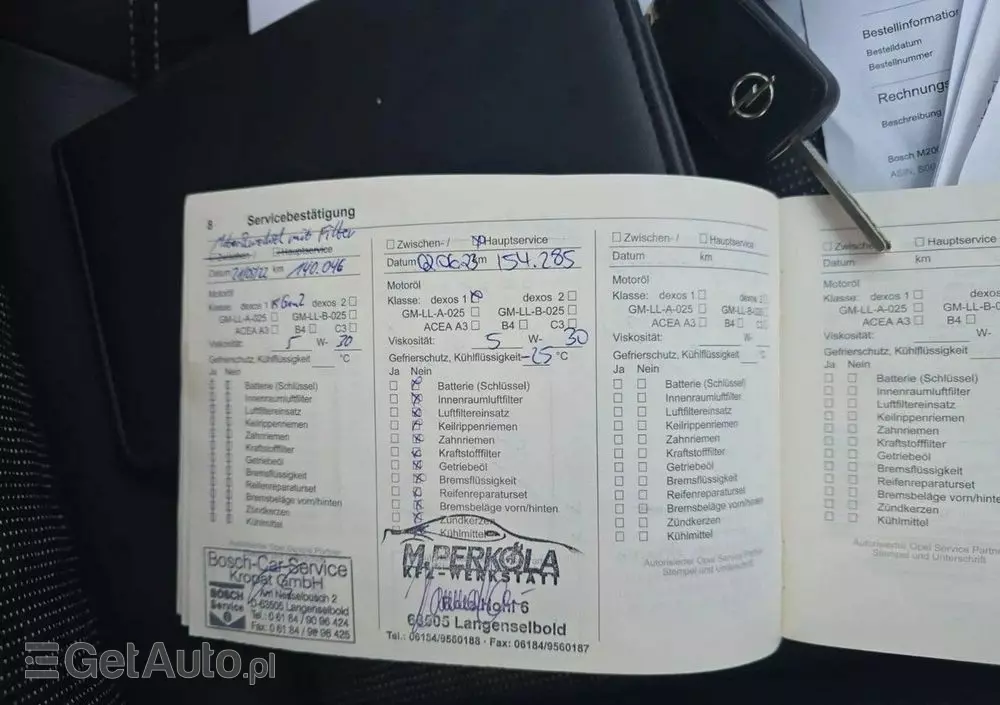 Bestellinformation
Bestelldatum
Bestellnummer
Rechnungs
Beschreibung
Bosch M200
8 Servicebestätigung
mit Filter
Zwischen- / Hauptservice
Datum 21/05/22 km 140.046
Motoröl
Klasse: dexos 1 Gen2 dexos 2
GM-LL-A-025 GM-LL-B-025
ACEA A3 B4 C3
Viskosität: 5 W- 30
Gefrierschutz, Kühlflüssigkeit °C
Ja Nein
Batterie (Schlüssel)
Innenraumluftfilter
Luftfiltereinsatz
Keilrippenriemen
Zahnriemen
Kraftstofffilter
Getriebeöl
Bremsflüssigkeit
Reifenreparaturset
Bremsbeläge vorn/hinten
Zündkerzen
Kühlmittel
Autorisierter Opel Service Partner
Bosch-Car-Service
Kropat GmbH
BOSCH
Service
Am Nesselbusch 2
D-63505 Langenselbold
Tel.: 0 61 84 / 90 96 424
Fax: 0 61 84 / 90 96 425
Zwischen- / Hauptservice
Datum 02.06.23 km 154.285
Motoröl
Klasse: dexos 1 dexos 2
GM-LL-A-025 GM-LL-B-025
ACEA A3 B4 C3
Viskosität: 5 W- 30
Gefrierschutz, Kühlflüssigkeit -25 °C
Ja Nein
Batterie (Schlüssel)
Innenraumluftfilter
Luftfiltereinsatz
Keilrippenriemen
Zahnriemen
Kraftstofffilter
Getriebeöl
Bremsflüssigkeit
Reifenreparaturset
Bremsbeläge vorn/hinten
Zündkerzen
Kühlmittel
M.PERKOLA
KFZ-WERKSTATT
6
63505 Langenselbold
Tel.: 06184/9560188 · Fax: 06184/9560187
Zwischen- / Hauptservice
Datum km
Motoröl
Klasse: dexos 1 dexos 2
GM-LL-A-025 GM-LL-B-025
ACEA A3 B4 C3
Viskosität: W-
Gefrierschutz, Kühlflüssigkeit °C
Ja Nein
Batterie (Schlüssel)
Innenraumluftfilter
Luftfiltereinsatz
Keilrippenriemen
Zahnriemen
Kraftstofffilter
Getriebeöl
Bremsflüssigkeit
Reifenreparaturset
Bremsbeläge vorn/hinten
Zündkerzen
Kühlmittel
Autorisierter Opel Service Partner
Stempel und Unterschrift
Zwischen Hauptservice
Datum km
Motoröl
Klasse: dexos 1 dexos 2
GM-LL-A-025 GM-LL-B-025
ACEA A3 B4 C3
Viskosität: W-
Gefrierschutz, Kühlflüssigkeit
Ja Nein
Batterie (Schlüssel)
Innenraumluftfilter
Luftfiltereinsatz
Keilrippenriemen
Zahnriemen
Kraftstofffilter
Getriebeöl
Bremsflüssigkeit
Reifenreparaturset
Bremsbeläge vorn/hinten
Zündkerzen
Kühlmittel
Autorisierter Opel Service Partner
Stempel und Unterschrift
GetAuto.pl